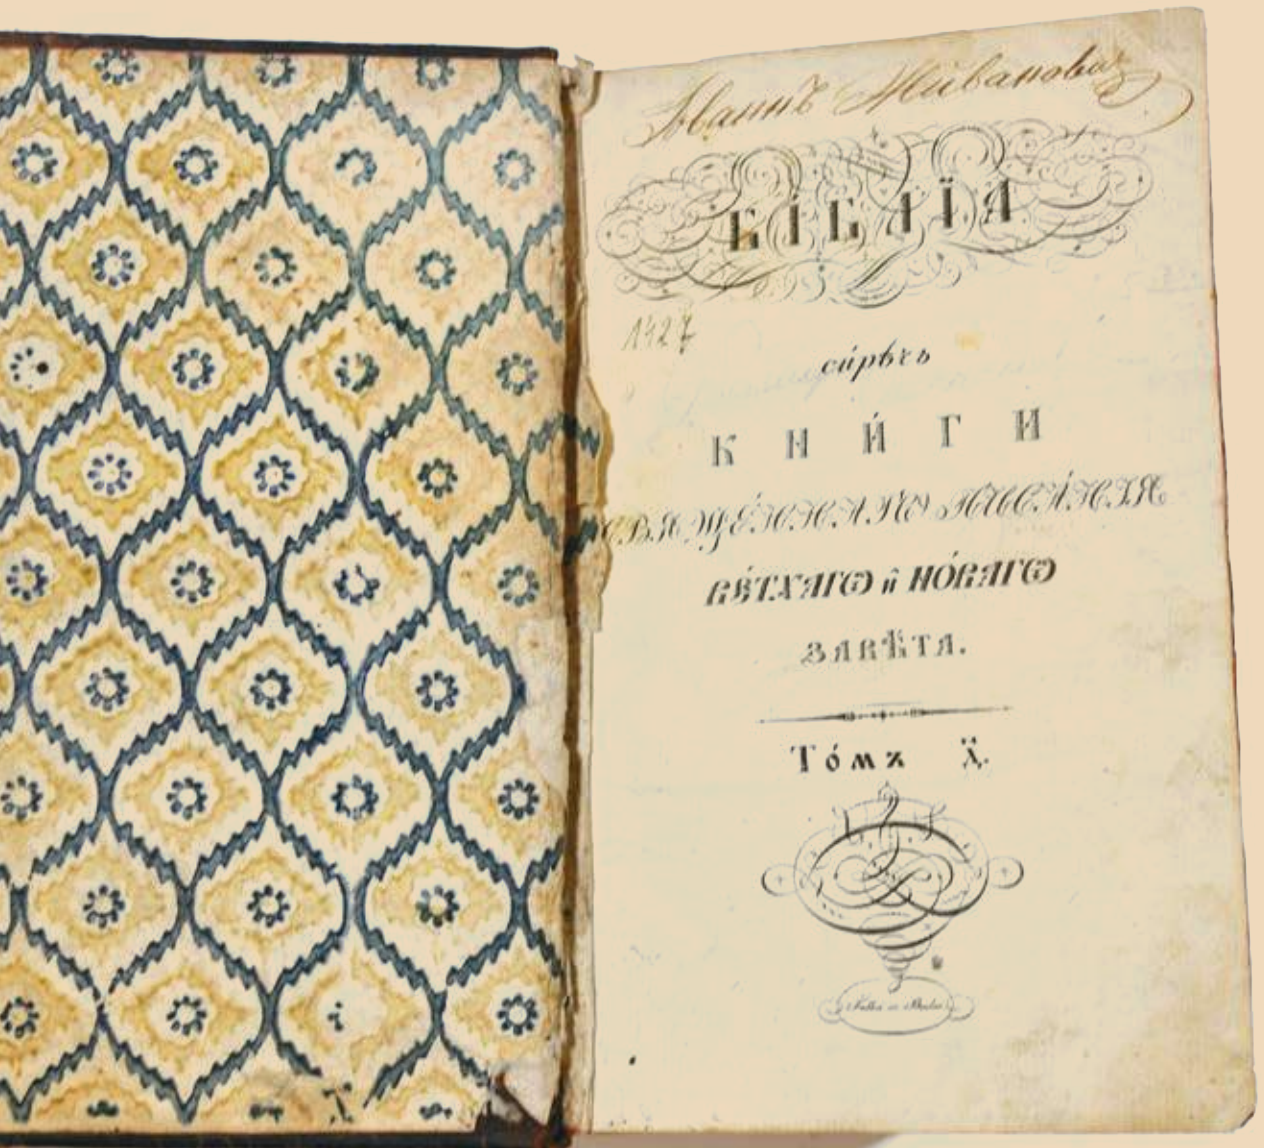 Іваннъ Живановић
БІ́БЛЇА
1427
си́рѣчь
КНИ́ГИ
СВЯЩЕ́ННАГѠ ПИСА́НІЯ
ВЕ́ТХАГѠ и҆ НО́ВАГѠ
ЗАВѢ́ТА.
То́мъ